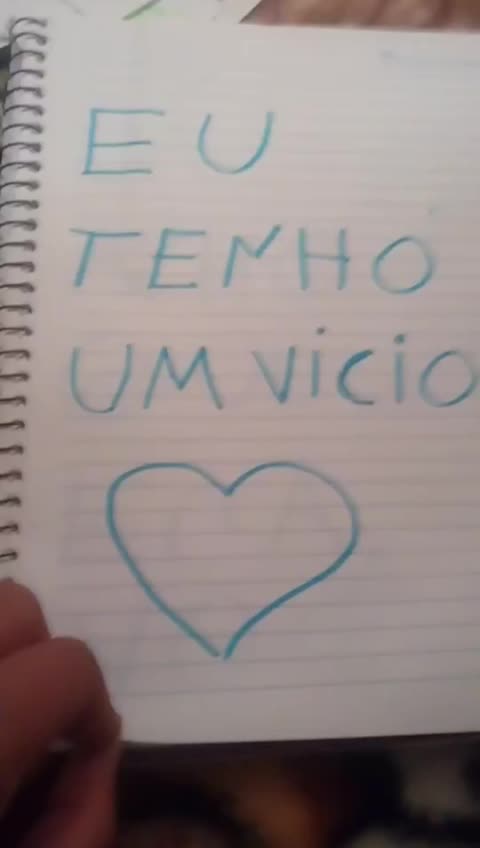 EU
TENHO
UM ViCiO